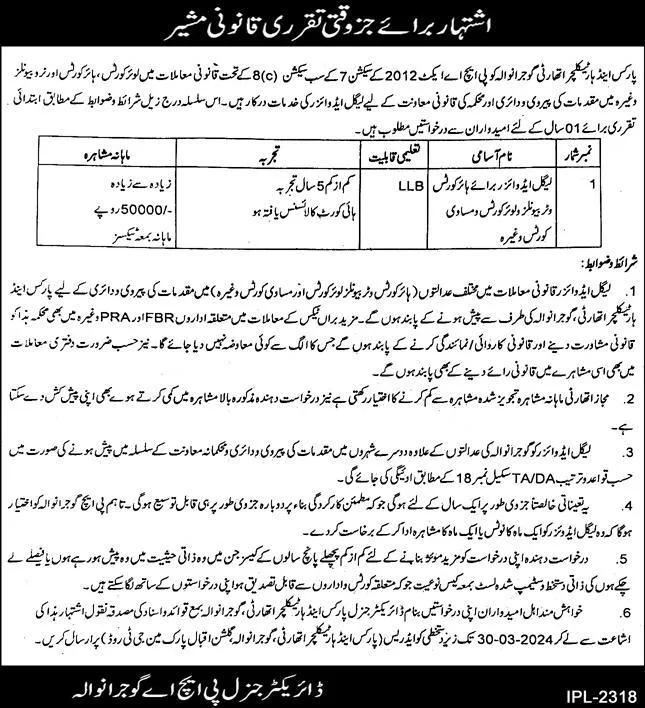 اشتہار برائے جزوقتی تقرری قانونی مشیر
پارکس اینڈ ہارٹیکلچر اتھارٹی گوجرانوالہ کو پی ایچ اے ایکٹ 2012 کے سیکشن 7 کے سب سیکشن 8(c) کے تحت قانونی معاملات میں لوئر کورٹس، ہائر کورٹس اور ٹربیونلز
وغیرہ میں مقدمات کی پیروی و دائری اور محکمہ کی قانونی معاونت کے لیے لیگل ایڈوائزر کی خدمات درکار ہیں۔ اس سلسلہ درج زیل شرائط و ضوابط کے مطابق ابتدائی
تقرری برائے 01 سال کے لئے امیدواران سے درخواستیں مطلوب ہیں۔
نمبر شمار نام آسامی تعلیمی قابلیت تجربہ ماہانہ مشاہرہ
1 لیگل ایڈوائزر برائے ہائر کورٹس LLB کم از کم 5 سال تجربہ زیادہ سے زیادہ
وٹربیونلز ولوئر کورٹس ومساوی ہائی کورٹ کا لائسنس یافتہ ہو 50000/- روپے
کورٹس وغیرہ ماہانہ بمعہ ٹیکسز
شرائط وضوابط:
1. لیگل ایڈوائزر قانونی معاملات میں مختلف عدالتوں (ہائر کورٹس وٹربیونلز لوئر کورٹس اور مساوی کورٹس وغیرہ) میں مقدمات کی پیروی و دائری کے لیے پارکس اینڈ
ہارٹیکلچر اتھارٹی گوجرانوالہ کی طرف سے پیش ہونے کے پابند ہوں گے۔ مزید براں ٹیکس کے معاملات میں متعلقہ اداروں FBR اور PRA وغیرہ میں بھی محکمہ ہذا کو
قانونی مشاورت دینے اور قانونی کاروائی/نمائندگی کرنے کے پابند ہوں گے جس کا الگ سے کوئی معاوضہ نہیں دیا جائے گا۔ نیز حسب ضرورت دفتری معاملات
میں بھی اسی مشاہرے میں قانونی رائے دینے کے بھی پابند ہوں گے۔
2. مجاز اتھارٹی ماہانہ مشاہرہ تجویز شدہ مشاہرہ سے کم کرنے کا اختیار رکھتی ہے نیز درخواست دہندہ مذکورہ بالا مشاہرہ میں کمی کرتے ہوے بھی اپنی پیش کش دے سکتا
ہے۔
3. لیگل ایڈوائزر کو گوجرانوالہ کی عدالتوں کے علاوہ دوسرے شہروں میں مقدمات کی پیروی و دائری و محکمانہ معاونت کے سلسلہ میں پیش ہونے کی صورت میں
حسب قواعد و ترتیب TA/DA سکیل نمبر 18 کے مطابق ادائیگی کی جائے گی۔
4. یہ تعیناتی خالصتاً جزوی طور پر ایک سال کے لئے ہوگی جو کہ مطمئن کارکردگی بناء پر دوبارہ جزوی طور پر ہی قابل توسیع ہوگی۔ تاہم پی ایچ گوجرانوالہ کو اختیار
ہوگا کہ وہ لیگل ایڈوائزر کو ایک ماہ کا نوٹس یا ایک ماہ کا مشاہرہ ادا کر کے برخاست کر دے۔
5. درخواست دہندہ اپنی درخواست کو مزید موئثر بنانے کے لئے کم از کم پچھلے پانچ سالوں کے کیسز جن میں وہ ذاتی حیثیت میں وہ پیش ہو رہے ہوں یا فیصلے لے
چکے ہوں کی ذاتی دستخط و سٹیمپ شدہ لسٹ بمعہ کیس نوعیت جو کہ متعلقہ کورٹس و اداروں سے قابل تصدیق ہو اپنی درخواستوں کے ساتھ لگا سکتے ہیں۔
6. خواہش مند اہل امیدواران اپنی درخواستیں بنام ڈائریکٹر جنرل پارکس اینڈ ہارٹیکلچر اتھارٹی، گوجرانوالہ بمع قوائد و اسناد کی مصدقہ نقول اشتہار ہذا کی
اشاعت سے لے کر 30-03-2024 تک زیر دستخطی کو ایڈریس (پارکس اینڈ ہارٹیکلچر اتھارٹی، گوجرانوالہ گلشن اقبال پارک مین جی ٹی روڈ) پر ارسال کریں۔
ڈائریکٹر جنرل پی ایچ اے گوجرانوالہ
IPL-2318